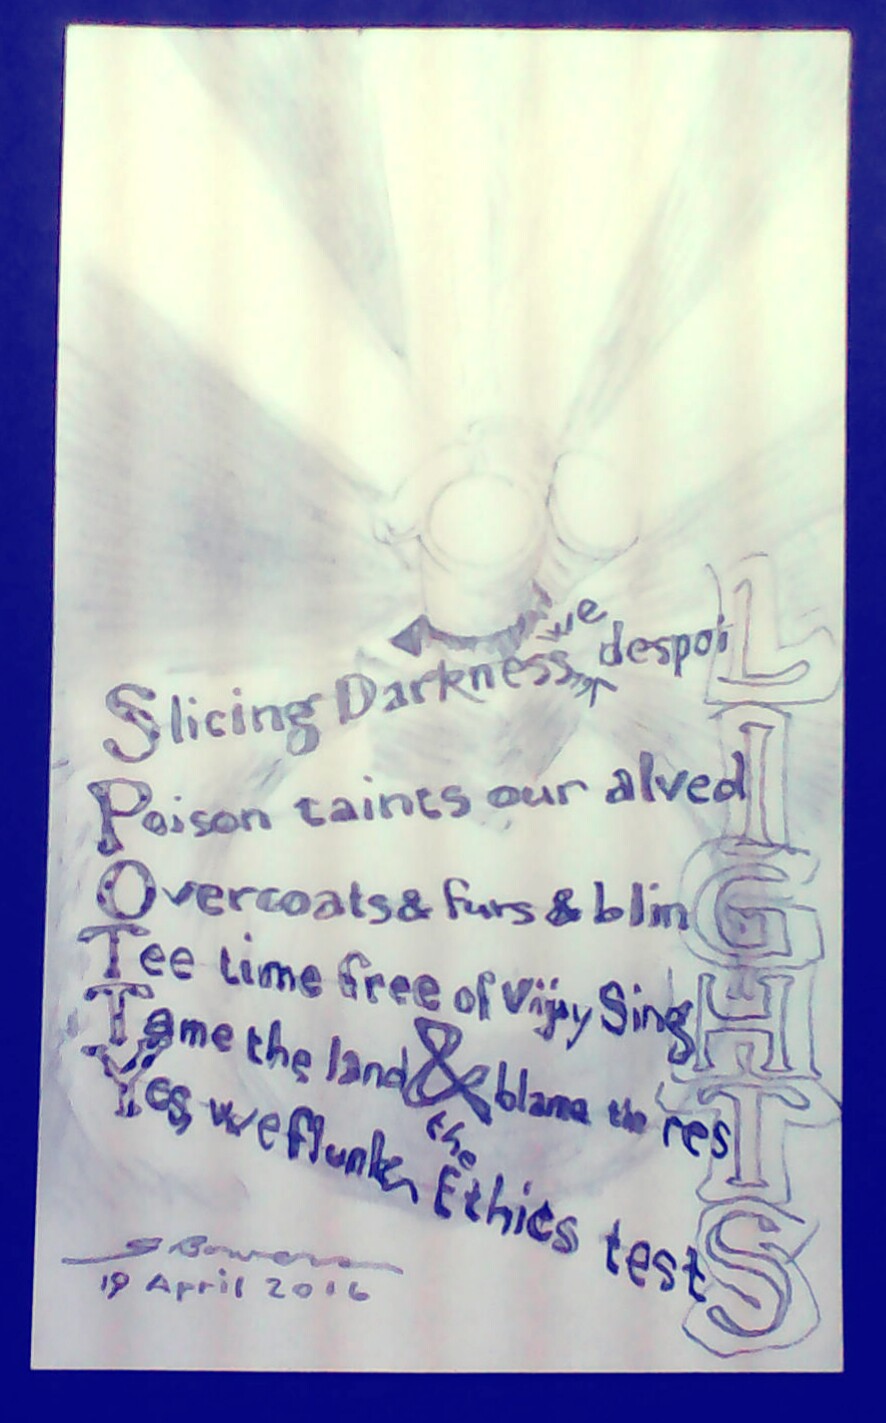 Slicing Darkness, we despoiL
Poison taints our alveolI
Overcoats & furs & blinG
Tee time free of Vijay SingH
Tame the land & blame the resT
Yes, we flunk the Ethics testS
S Bowers
19 April 2016